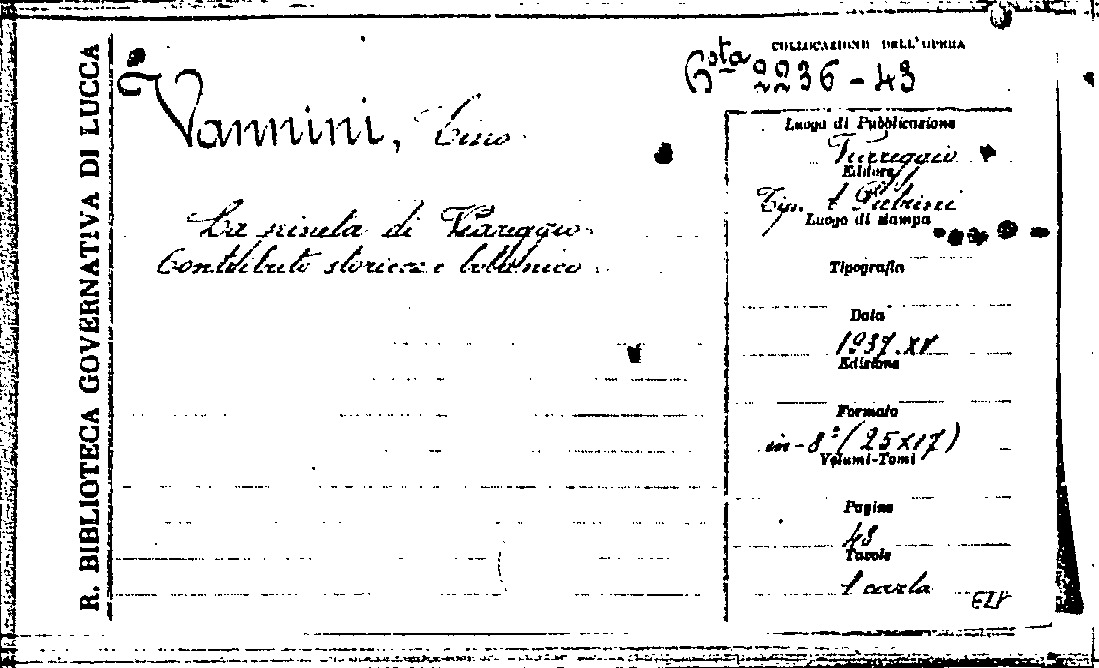 R. BIBLIOTECA GOVERNATIVA DI LUCCA
COLLOCAZIONE DELL'OPERA
Bsta 2236-43
Vannini, Tino
La pineta di Viareggio
Contributo storico e botanico
Luogo di Pubblicazione
Viareggio
Editore
Tip. Pubrini
Luogo di stampa
Tipografia
Data
1937.XV
Edizione
Formato
in-8° (25x17)
Volumi-Tomi
Pagine
43
Tavole
1 carla